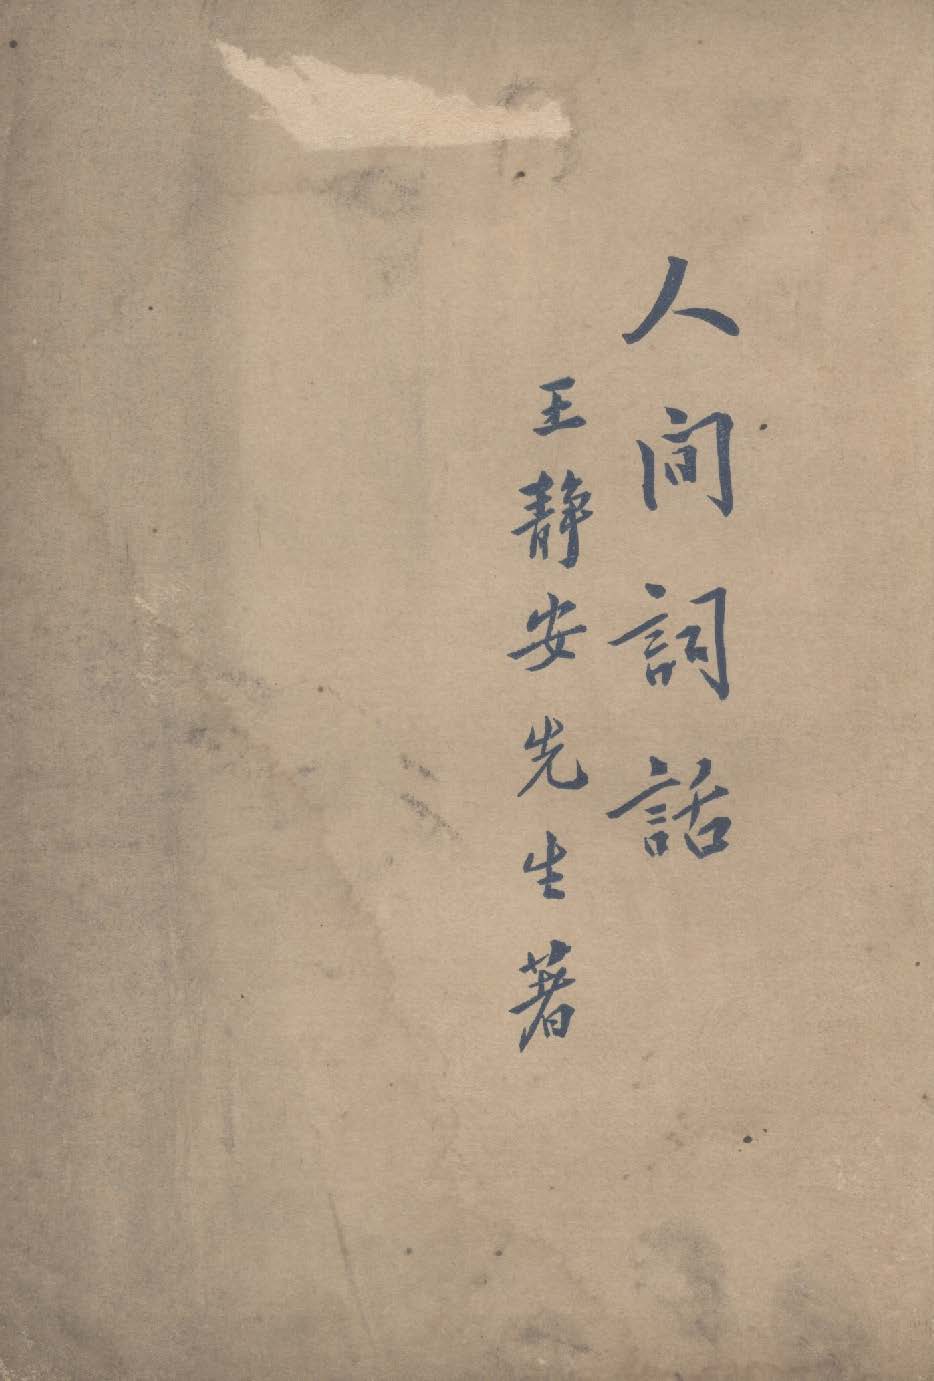 人間詞話
王靜安先生著